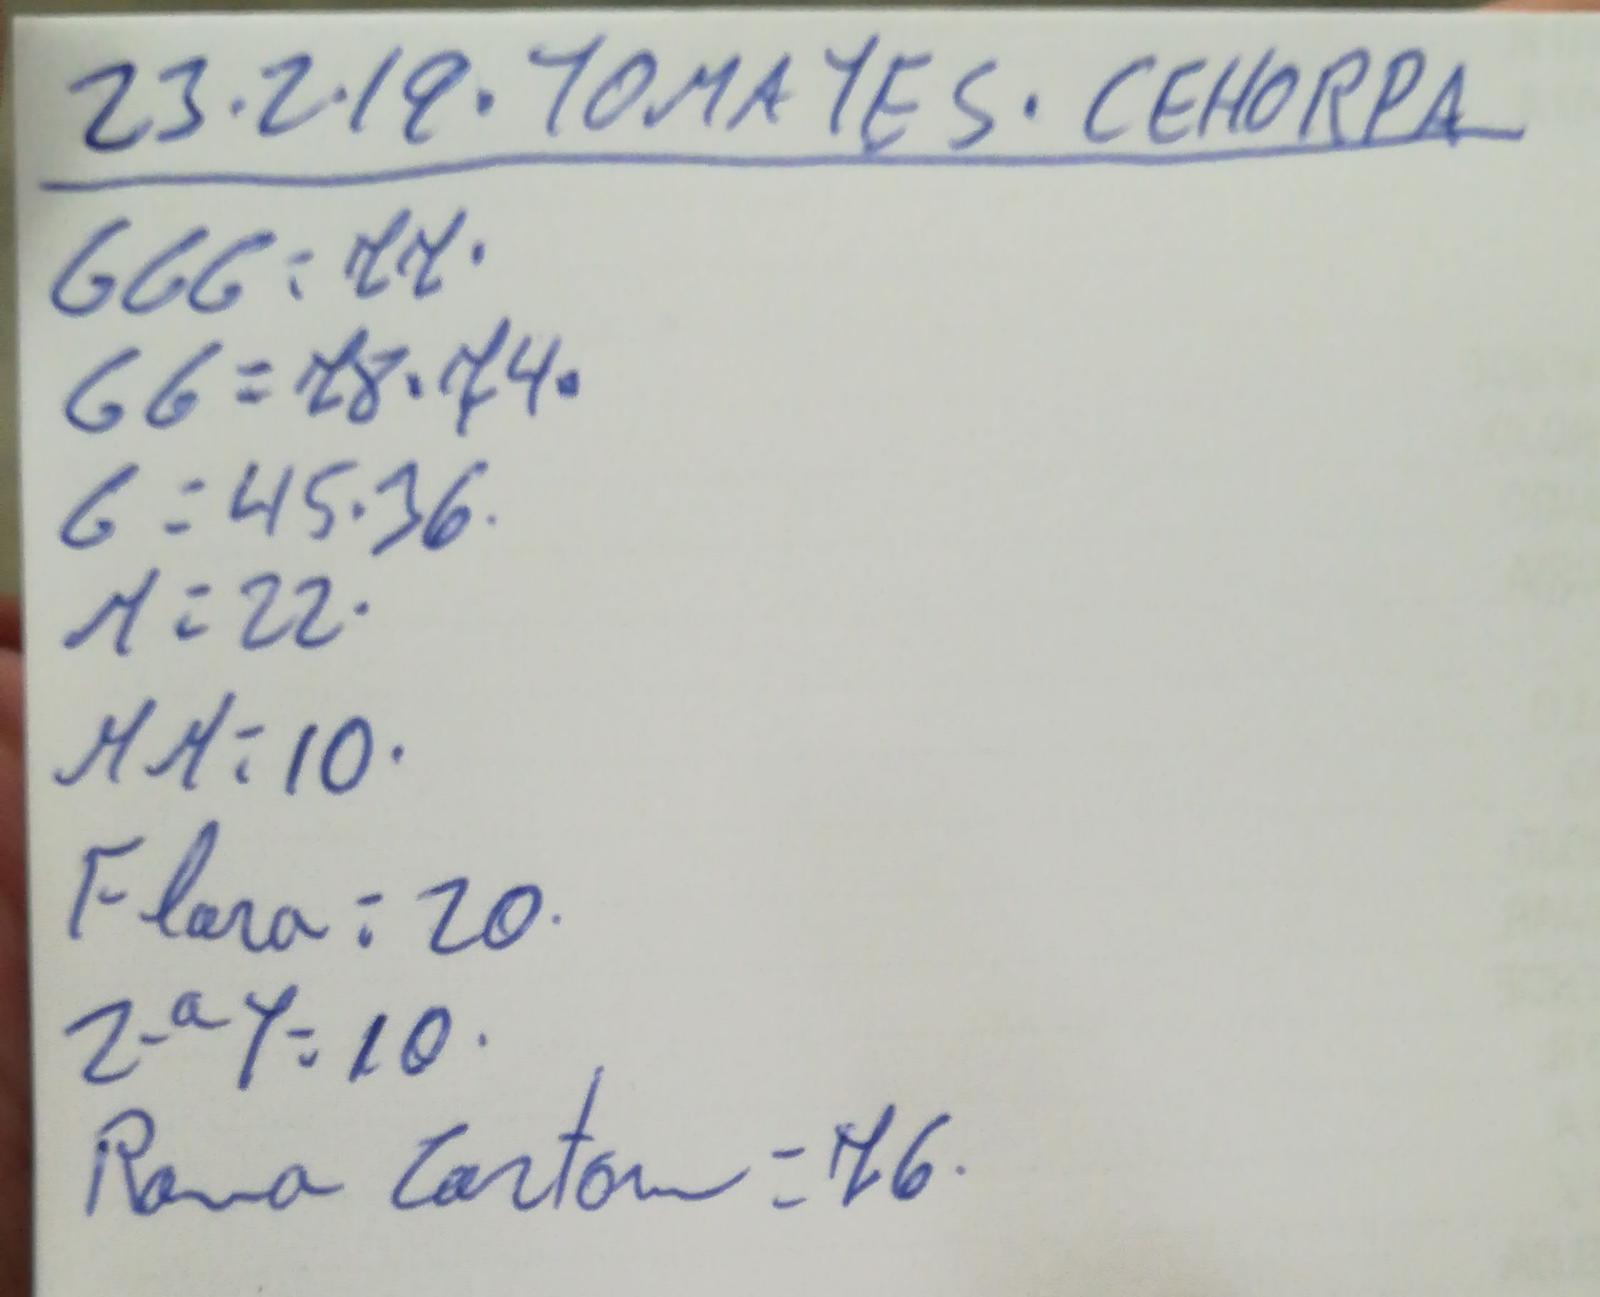 23.2.19. TOMATES. CEHORPA
GGG = 77.
GG = 78.74.
G = 45.36.
M = 22.
MM = 10.
Flora = 20.
2-ª T = 10.
Rama Carton = 76.